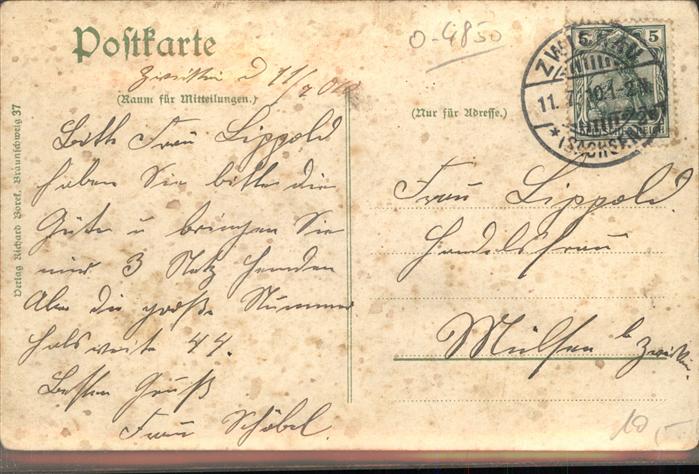 Postkarte
Zwickau d 11/7 010
(Raum für Mitteilungen.)
Bitte Frau Lippold
haben Sie bitte die
Güte u bringen Sie
mir 3 Netz hemden
Aber die große Nummer
Halsweite 44.
Besten Gruß
Frau Schöbel.
Verlag Richard Borek, Braunschweig 37
0-4850
5 5
ZWICKAU
11.7.10.1-2N
* (SACHSEN)
(Nur für Adresse.)
Frau Lippold.
Handelsfrau
Mülsen b Zwickau.
10,-